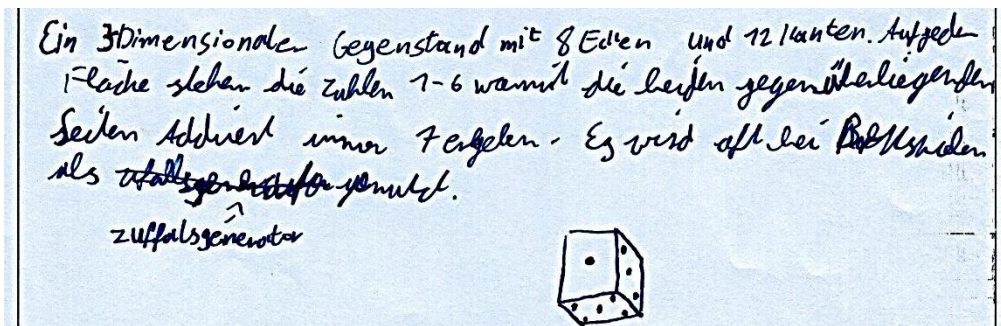 Ein 3Dimensionaler Gegenstand mit 8 Ecken und 12 Kanten. Auf jeder
Fläche stehen die Zahlen 1-6 die beiden gegenüberliegenden
Seiten Addiert immer 7 ergeben. Es wird oft bei
als genutzt.
zuffalsgenerator